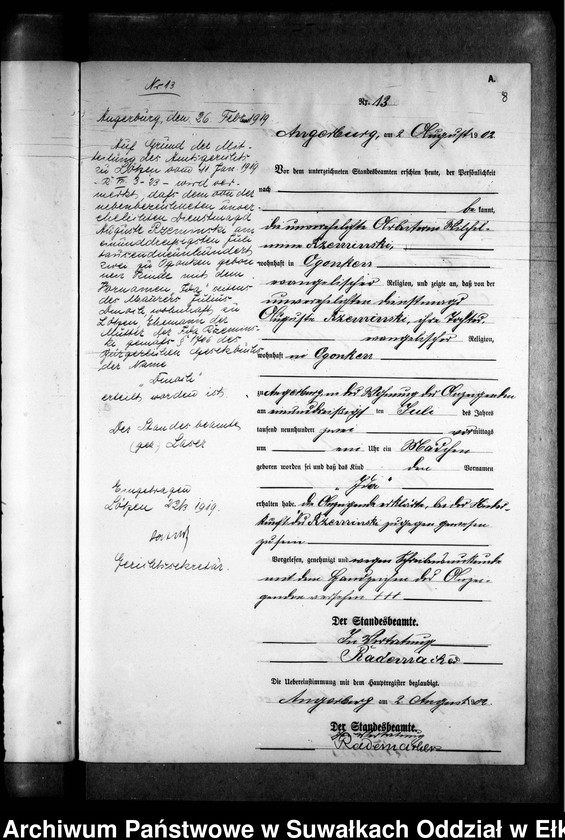 A.
8
Nr 13
Nr. 13
Angerburg, den 26 Febr 1919
Auf Grund der Mit-
teilung des Amtsgerichts
zu Lötzen vom 11 Jan 1919
wird ver-
merkt, daß dem von der
nebenbezeichneten unver-
ehelichten Dienstmagd
Auguste Krzeminski am
einunddreißigsten Juli
tausendneunhundert
zwei zu Ogonken gebore-
nen Kinde mit dem
Vornamen "Ida" seitens
des Maurers Julius
wohnhaft in
Lötzen, Ehemann der
Mutter der Ida Krzemin-
ski gemäß § 1706 des
Bürgerlichen Gesetzbuchs
der Name
erteilt worden ist.
Der Standesbeamte
(gez.) Laser
Eingetragen
Lötzen 22/3 1919.
Gerichtssekretär.
Angerburg, am 2 August 1902
Vor dem unterzeichneten Standesbeamten erschien heute, der Persönlichkeit
nach
be kannt,
die unverehelichte Arbeiterin Wilhel-
mine Krzeminski,
wohnhaft in Ogonken
evangelischer Religion, und zeigte an, daß von der
unverehelichten Dienstmagd
Auguste Krzeminski, ihre Tochter
evangelischer Religion,
wohnhaft in Ogonken
zu Angerburg in der Wohnung der Anzeigenden
am einunddreißigsten Juli des Jahres
tausend neunhundert zwei vormittags
um ein Uhr ein Mädchen
geboren worden sei und daß das Kind den Vornamen
"Ida"
erhalten habe. Die Anzeigende erklärte, bei der Nieder-
kunft der Krzeminski zugegen gewesen
zu sein
Vorgelesen, genehmigt und wegen Schreibensunkunde
mit dem Handzeichen der Anzei-
genden versehen +++
Der Standesbeamte.
In Vertretung
Rademacher
Die Uebereinstimmung mit dem Hauptregister beglaubigt.
Angerburg am 2 August 1902
Der Standesbeamte.
In Vertretung
Rademacher
Archiwum Państwowe w Suwałkach Oddział w Ełk